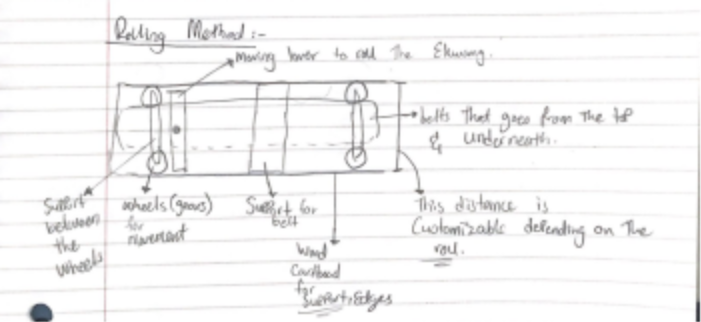 Rolling Method :-
moving lever to roll the Ekwang.
belts that goes from the top
& underneath.
Support
between
the
wheels
wheels (gears)
for
movement
Support for
belt
Wood
Cardboard
for
support, Edges
This distance is
Customizable depending on the
roll.